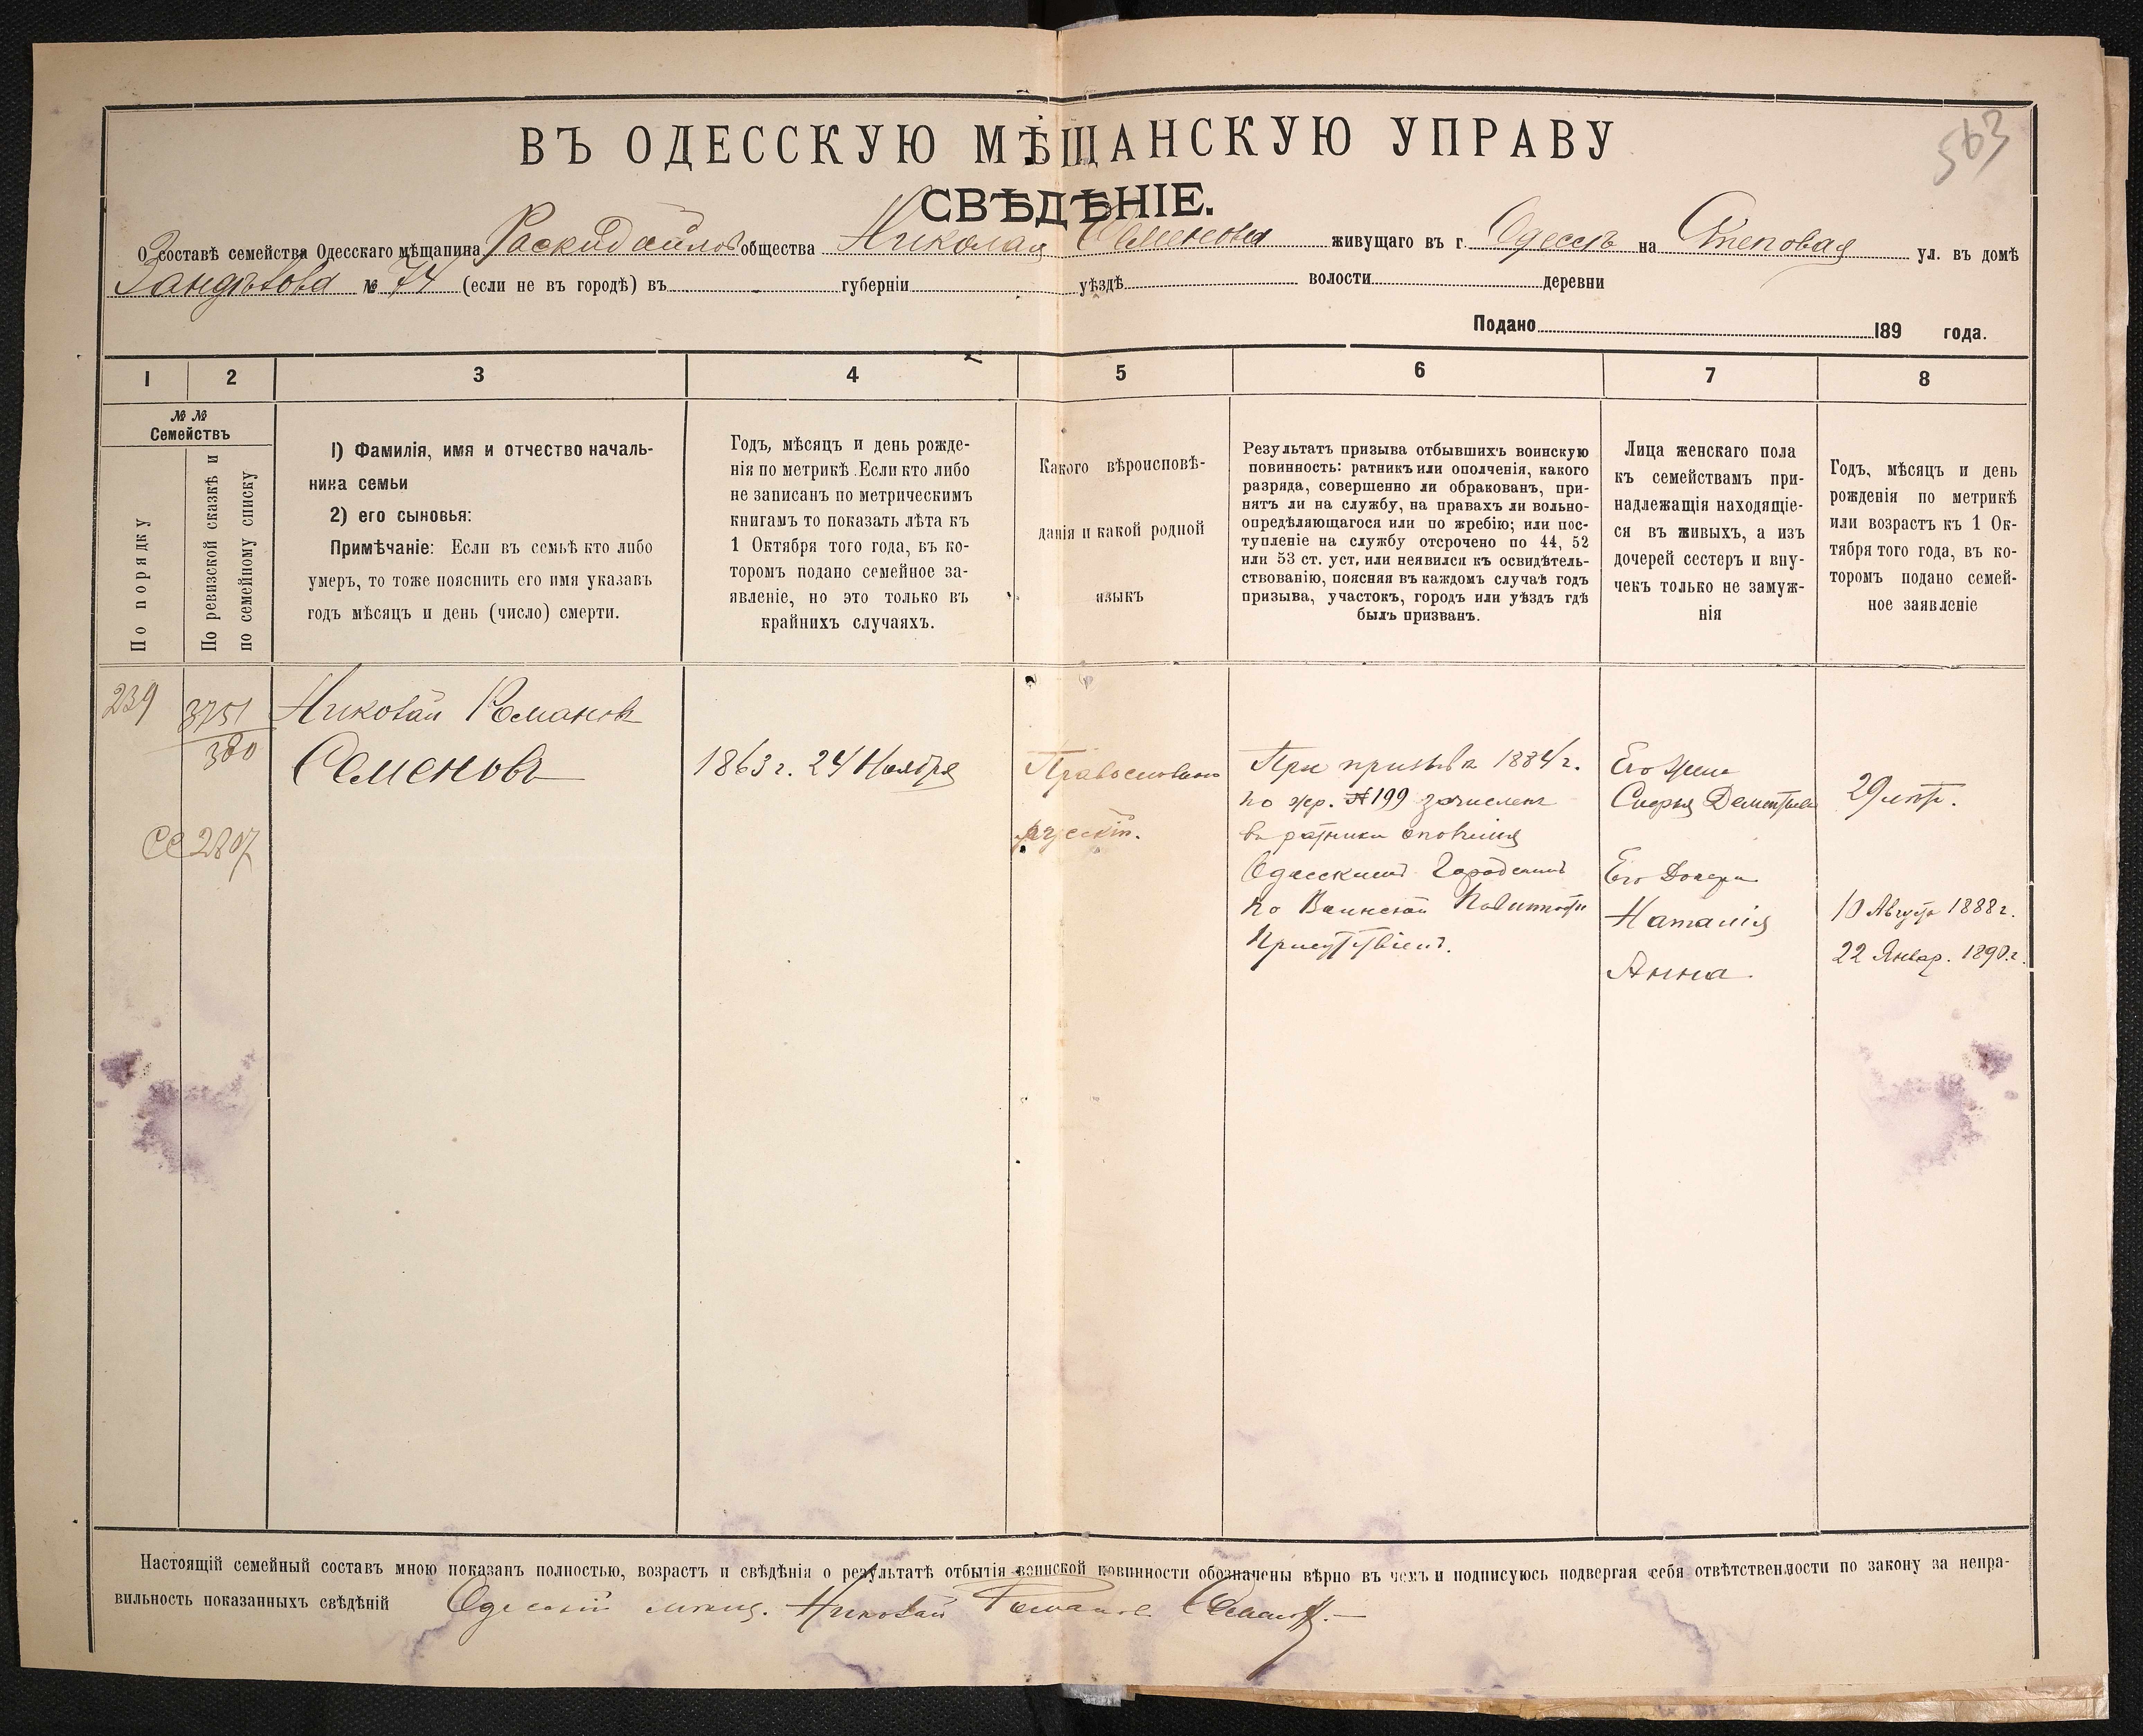 563
ВЪ ОДЕССКУЮ МѢЩАНСКУЮ УПРАВУ
СВѢДѢНІЕ.
О составѣ семейства Одесскаго мѣщанина Раскидайлов общества Николая Семенова живущаго въ г. Одессѣ на Степовая ул. въ домѣ
№ 74 (если не въ городѣ) въ губерніи уѣздѣ волости деревни
Подано 189 года.
1 2 3 4 5 6 7 8
№ №
Семействъ
По порядку
По ревизской сказкѣ и
по семейному списку
1) Фамилія, имя и отчество началь-
ника семьи
2) его сыновья:
Примѣчаніе: Если въ семьѣ кто либо
умеръ, то тоже пояснить его имя указавъ
годъ мѣсяцъ и день (число) смерти.
Годъ, мѣсяцъ и день рожде-
нія по метрикѣ. Если кто либо
не записанъ по метрическимъ
книгамъ то показать лѣта къ
1 Октября того года, въ ко-
торомъ подано семейное за-
явленіе, но это только въ
крайнихъ случаяхъ.
Какого вѣроисповѣ-
данія и какой родной
языкъ
Результатъ призыва отбывшихъ воинскую
повинность: ратникъ или ополченія, какого
разряда, совершенно ли обракованъ, при-
нятъ ли на службу, на правахъ ли вольно-
опредѣляющагося или по жребію; или пос-
тупленіе на службу отсрочено по 44, 52
или 53 ст. уст, или неявился къ освидѣтель-
ствованію, поясняя въ каждомъ случаѣ годъ
призыва, участокъ, городъ или уѣздъ гдѣ
былъ призванъ.
Лица женскаго пола
къ семействамъ при-
надлежащія находящіе-
ся въ живыхъ, а изъ
дочерей сестеръ и вну-
чекъ только не замуж-
нія
Годъ, мѣсяцъ и день
рожденія по метрикѣ
или возрастъ къ 1 Ок-
тября того года, въ ко-
торомъ подано семей-
ное заявленіе
239
3751
380
СС 2807
Николай Романов
Семеновъ
1863 г. 24 Ноября
Православн
русскій.
При призывѣ 1884 г.
по жр. № 199 зачислен
в ратники ополченія
Одесским Городским
по Воинской Повинности
Присутствіем.
Его жена
Софья Дементьева
Его Дочери
Наталія
Анна.
29 лѣт.
10 Августа 1888 г.
22 Январ. 1890 г.
Настоящій семейный составъ мною показанъ полностью, возрастъ и свѣдѣнія о результатѣ отбытія воинской повинности обозначены вѣрно въ чемъ и подписуюсь подвергая себя отвѣтственности по закону за непра-
вильность показанныхъ свѣдѣній Одесскій мѣщ. Николай Романов Семенов.